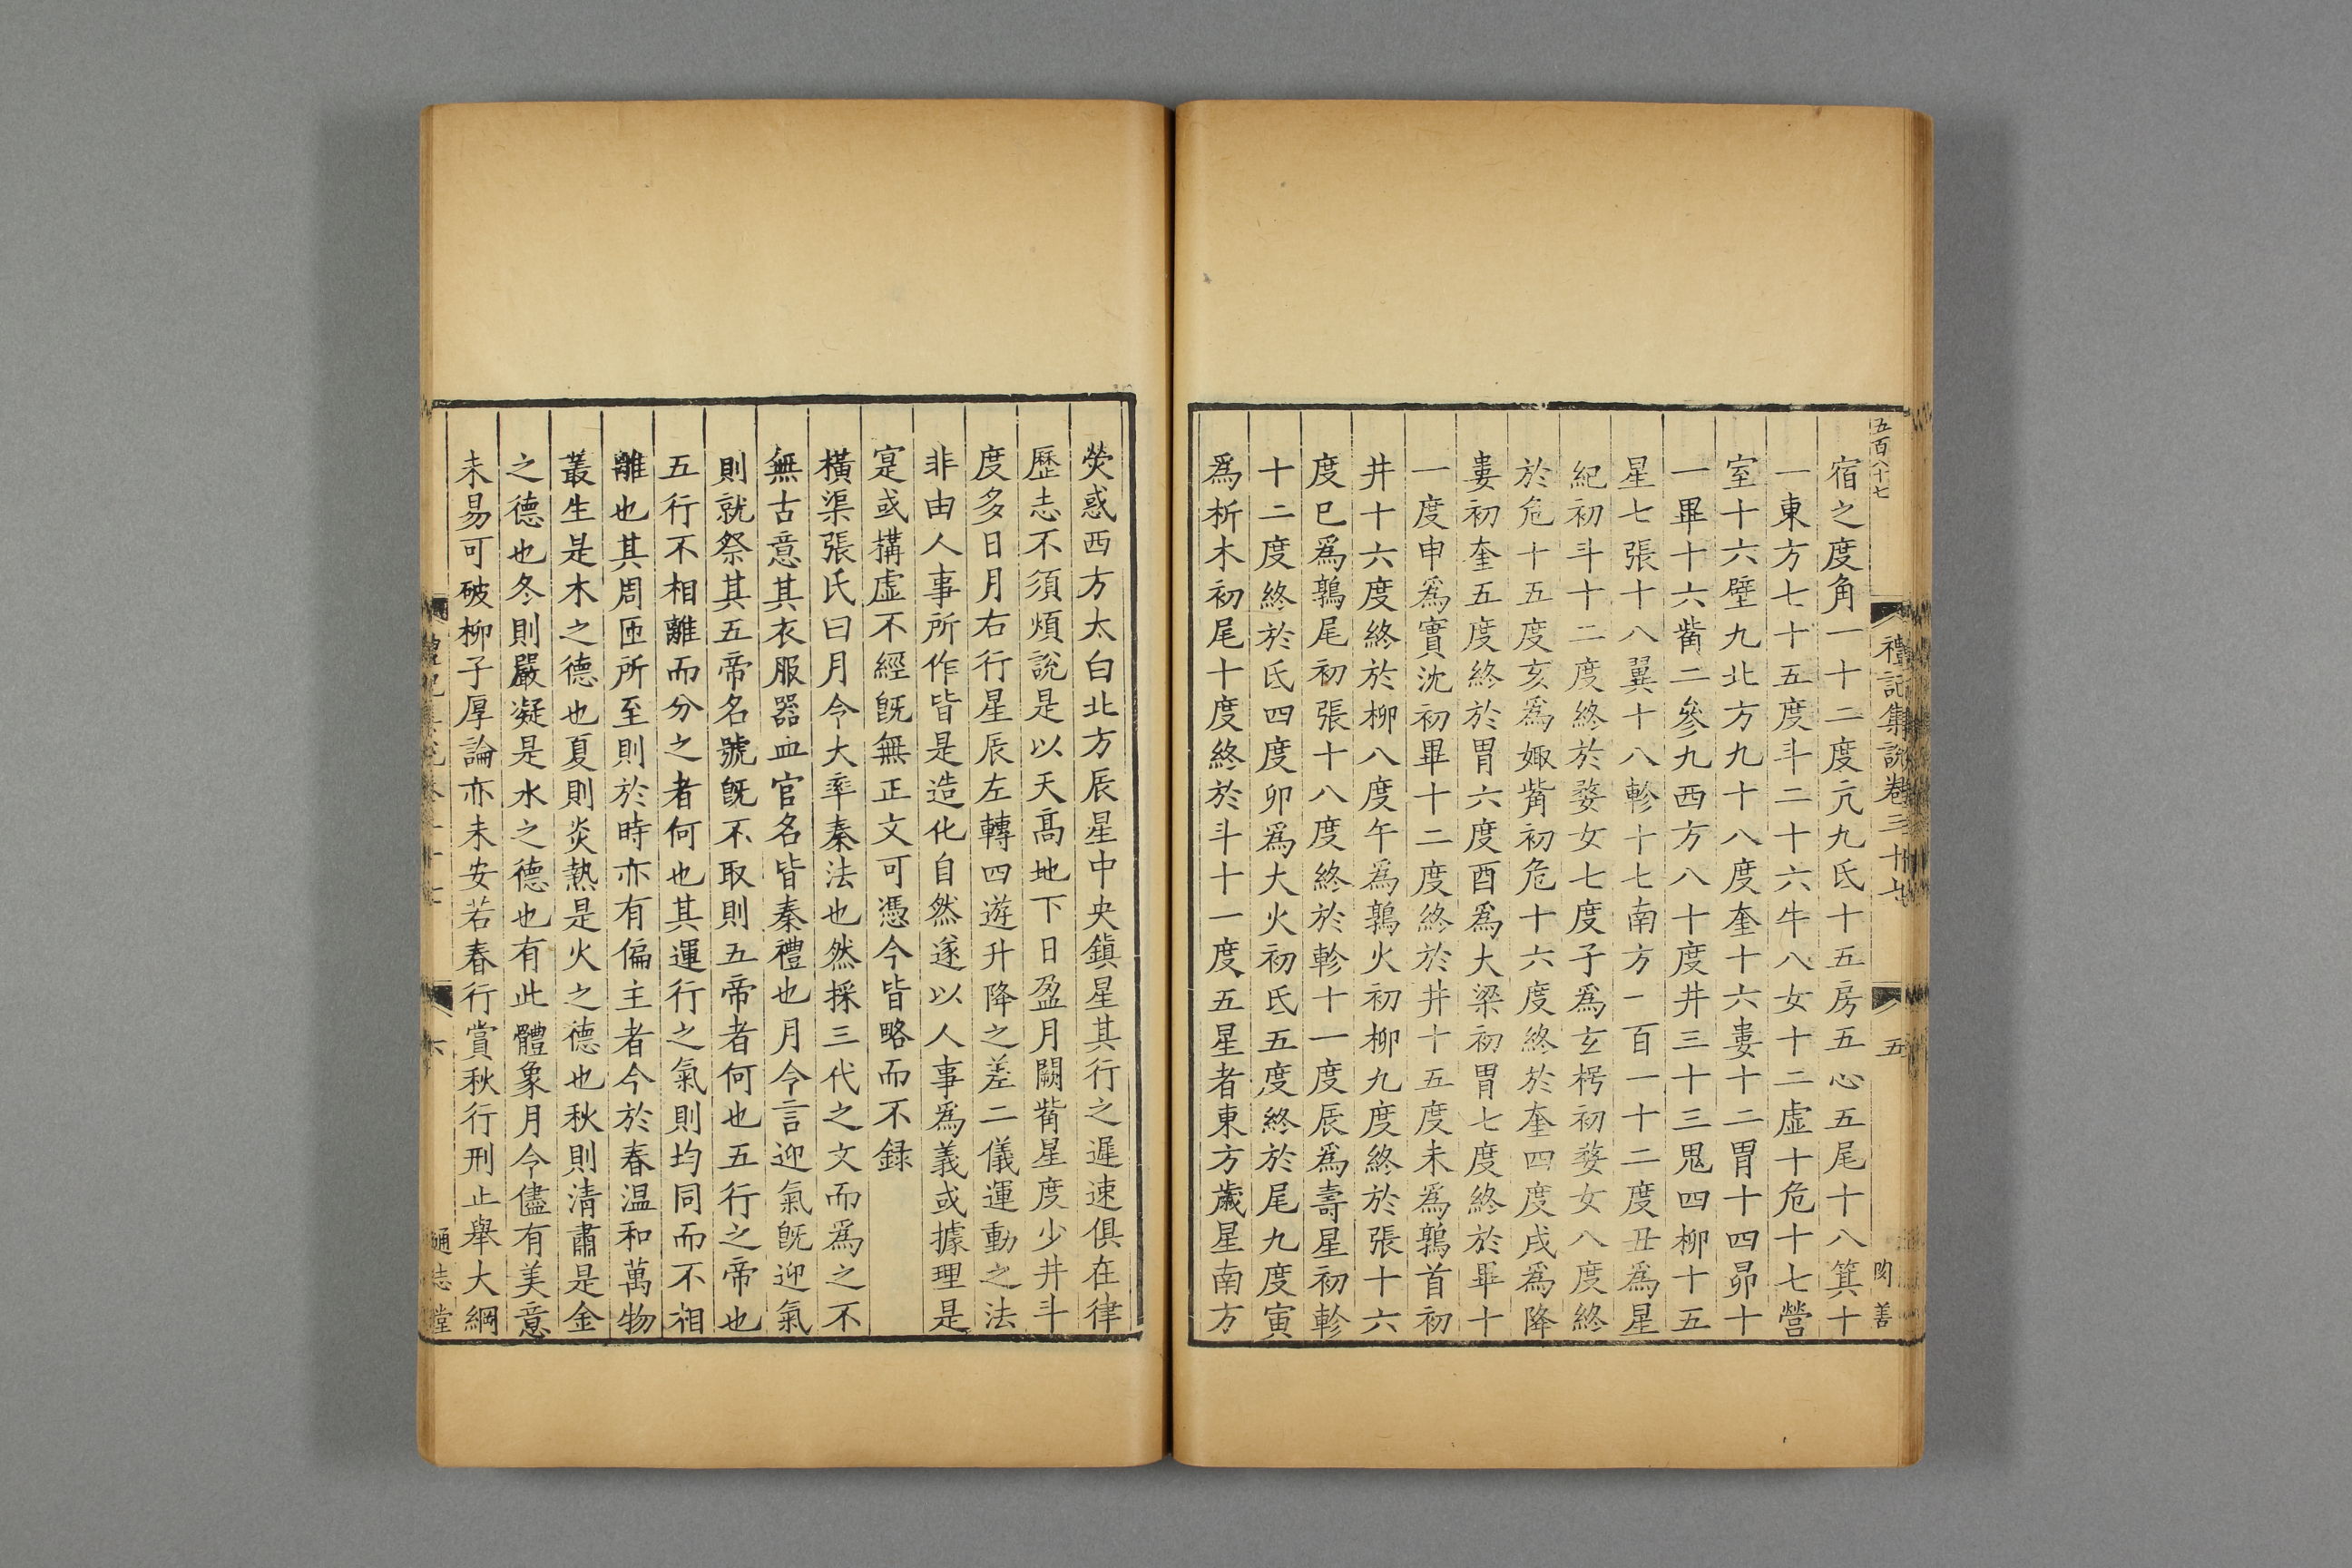 五百八十七
禮記集說卷三十七
五
善
宿之度角一十二度亢九氐十五房五心五尾十八箕十
一東方七十五度斗二十六牛八女十二虛十危十七營
室十六壁九北方九十八度奎十六婁十二胃十四昴十
一畢十六觜二參九西方八十度井三十三鬼四柳十五
星七張十八翼十八軫十七南方一百一十二度丑為星
紀初斗十二度終於婺女七度子為玄枵初婺女八度終
於危十五度亥為娵觜初危十六度終於奎四度戌為降
婁初奎五度終於胃六度酉為大梁初胃七度終於畢十
一度申為實沈初畢十二度終於井十五度未為鶉首初
井十六度終於柳八度午為鶉火初柳九度終於張十六
度巳為鶉尾初張十八度終於軫十一度辰為壽星初軫
十二度終於氐四度卯為大火初氐五度終於尾九度寅
為析木初尾十度終於斗十一度五星者東方歲星南方
熒惑西方太白北方辰星中央鎮星其行之遲速俱在律
歷志不須煩說是以天高地下日盈月闕觜星度少井斗
度多日月右行星辰左轉四遊升降之差二儀運動之法
非由人事所作皆是造化自然遂以人事為義或據理是
寔或搆虛不經旣無正文可憑今皆略而不録
橫渠張氏曰月令大率秦法也然採三代之文而為之不
無古意其衣服器血官名皆秦禮也月令言迎氣旣迎氣
則就祭其五帝名號旣不取則五帝者何也五行之帝也
五行不相離而分之者何也其運行之氣則均同而不相
離也其周匝所至則於時亦有偏主者今於春温和萬物
叢生是木之德也夏則炎熱是火之德也秋則清肅是金
之德也冬則嚴凝是水之德也有此體象月令儘有美意
未易可破柳子厚論亦未安若春行賞秋行刑止舉大綱
六
通志堂